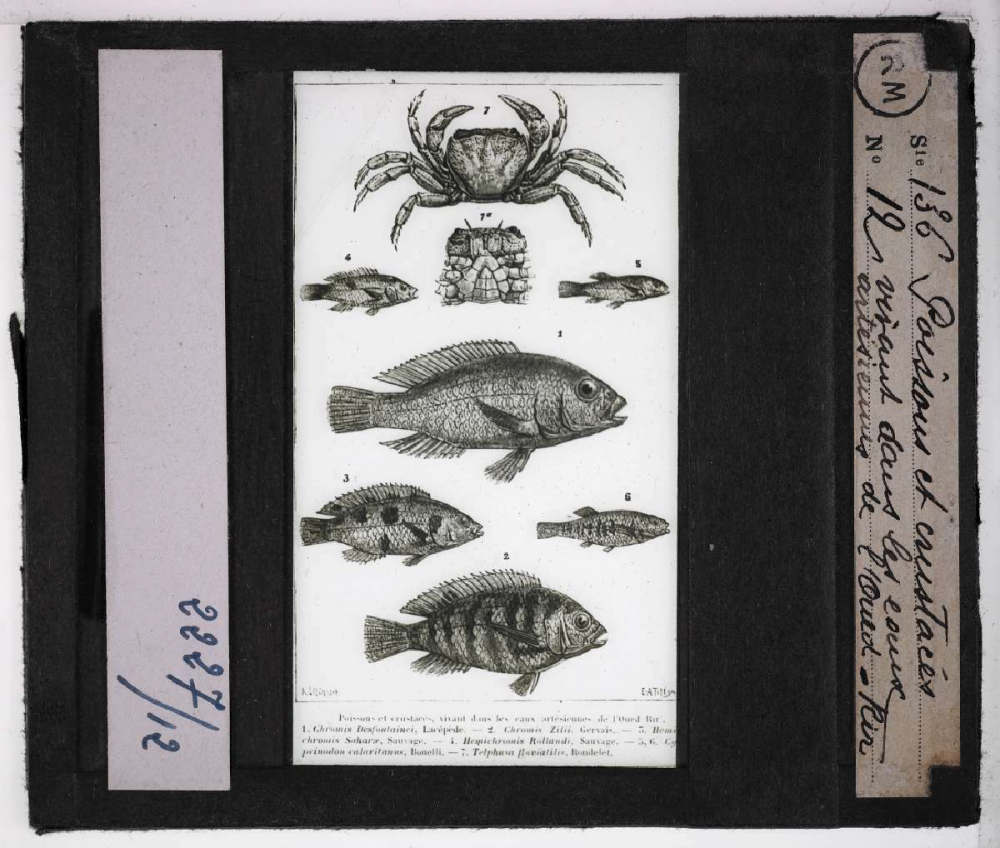 2227/12
7
7ª
4
5
1
3
6
2
Poissons et crustacés, vivant dans les eaux artésiennes de l'Oued Rir'.
1. Chromis Desfontainei, Lacépède. — 2. Chromis Zilii, Gervais. — 3. Hemi
chromis Saharæ, Sauvage. — 4. Hemichromis Rollandi, Sauvage. — 5, 6. Cy
prinodon calaritanus, Bonelli. — 7. Telphusa fluviatilis, Rondelet.
M
Sie 136 Poissons et crustacés
No 12 vivant dans les eaux
artesiennes de l'Oued-Rir